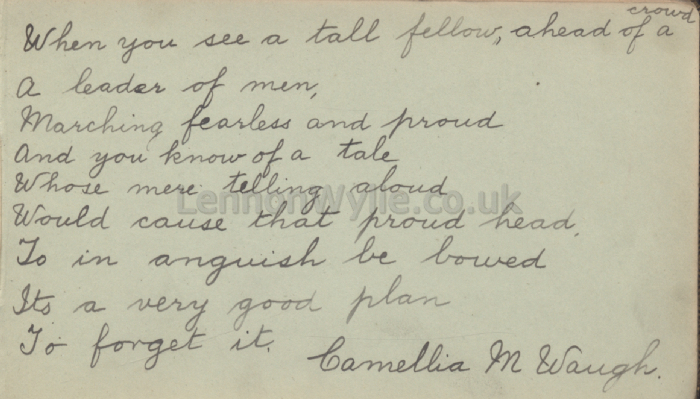 When you see a tall fellow, ahead of a crowd
A leader of men,
Marching fearless and proud
And you know of a tale
Whose mere telling aloud
LennonWylie.co.uk
Would cause that proud head,
To in anguish be bowed
Its a very good plan
To forget it.
Camellia M Waugh.